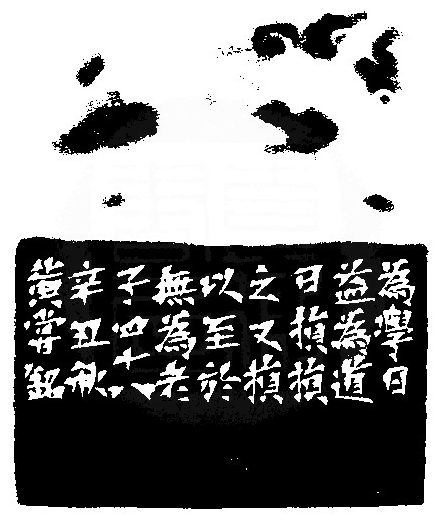 為學日
益為道
日損損
之又損
以至於
無為老
子四十八
辛丑秋
黃嘗銘